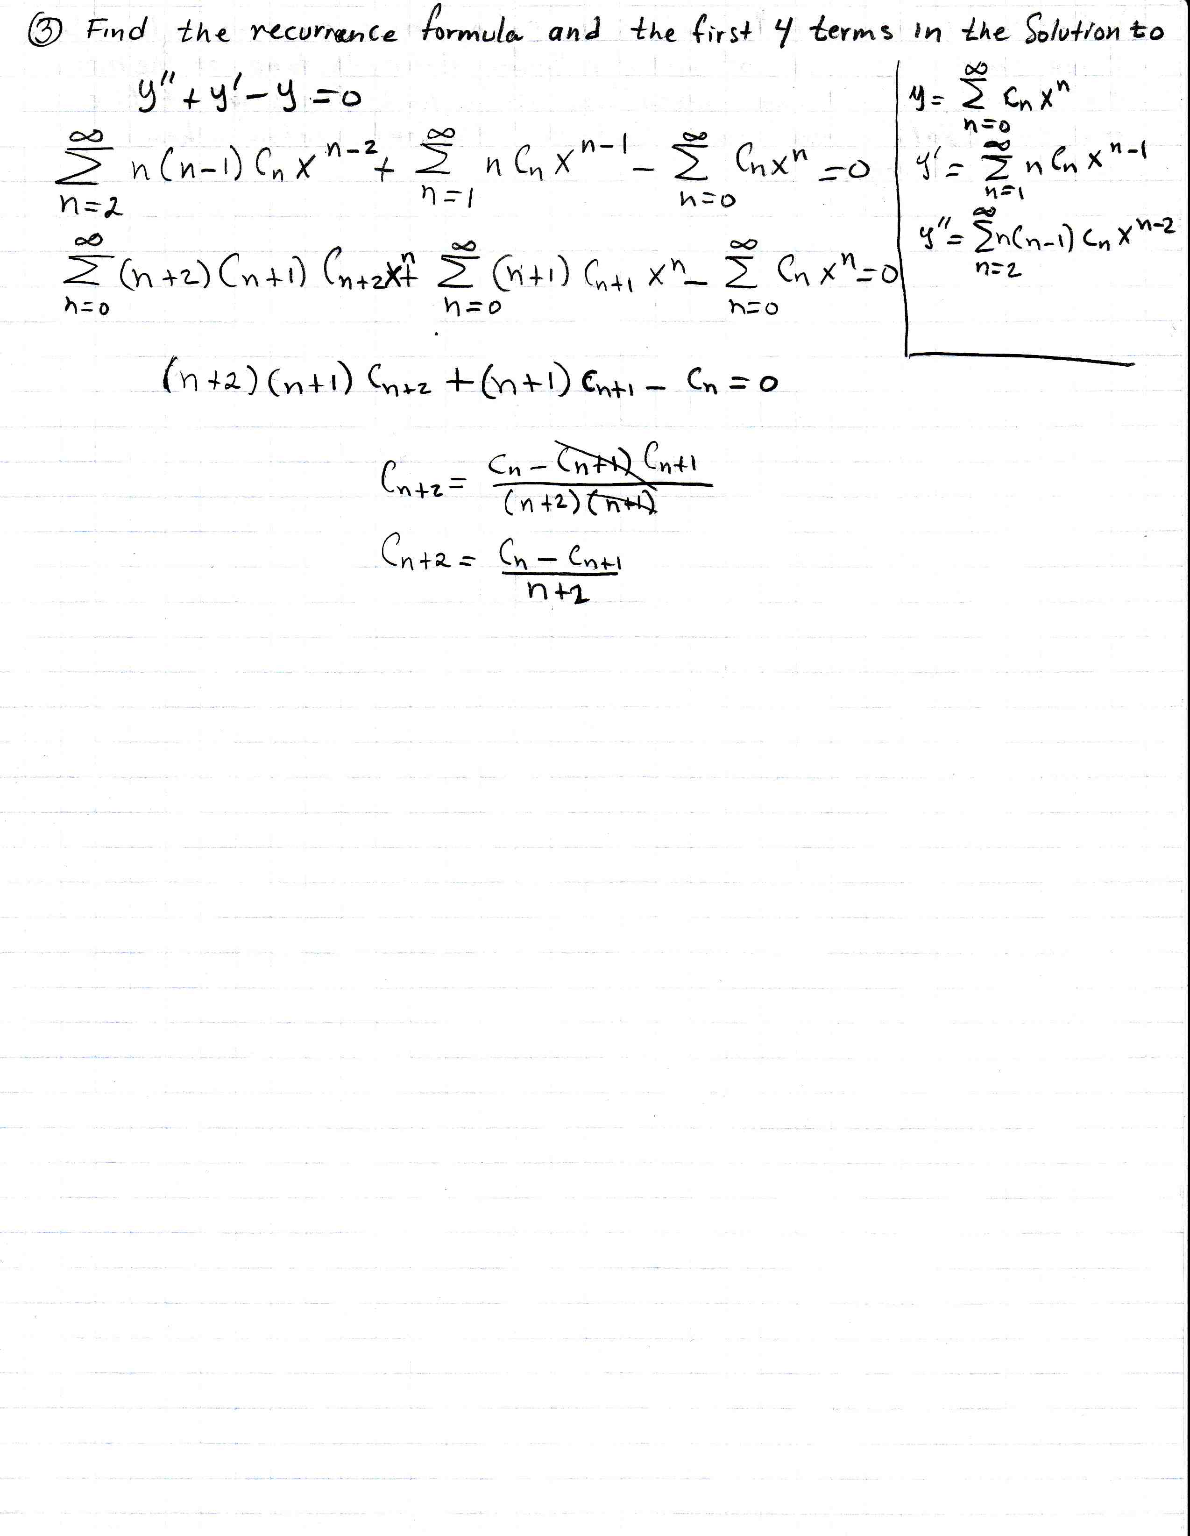 ③ Find the recurrence formula and the first 4 terms in the Solution to
y'' + y' - y = 0
∞ ∑ n=2 n(n-1) Cₙ xⁿ⁻² + ∞ ∑ n=1 n Cₙ xⁿ⁻¹ - ∞ ∑ n=0 Cₙxⁿ = 0
∞ ∑ n=0 (n+2)(n+1) Cₙ₊₂xⁿ + ∞ ∑ n=0 (n+1) Cₙ₊₁ xⁿ - ∞ ∑ n=0 Cₙ xⁿ = 0
y = ∞ ∑ n=0 Cₙ xⁿ
y' = ∞ ∑ n=1 n Cₙ xⁿ⁻¹
y'' = ∞ ∑ n=2 n(n-1) Cₙ xⁿ⁻²
(n+2)(n+1) Cₙ₊₂ + (n+1) Cₙ₊₁ - Cₙ = 0
Cₙ₊₂ = (Cₙ - (n+1) Cₙ₊₁) / ((n+2)(n+1))
Cₙ₊₂ = (Cₙ - Cₙ₊₁) / (n+2)